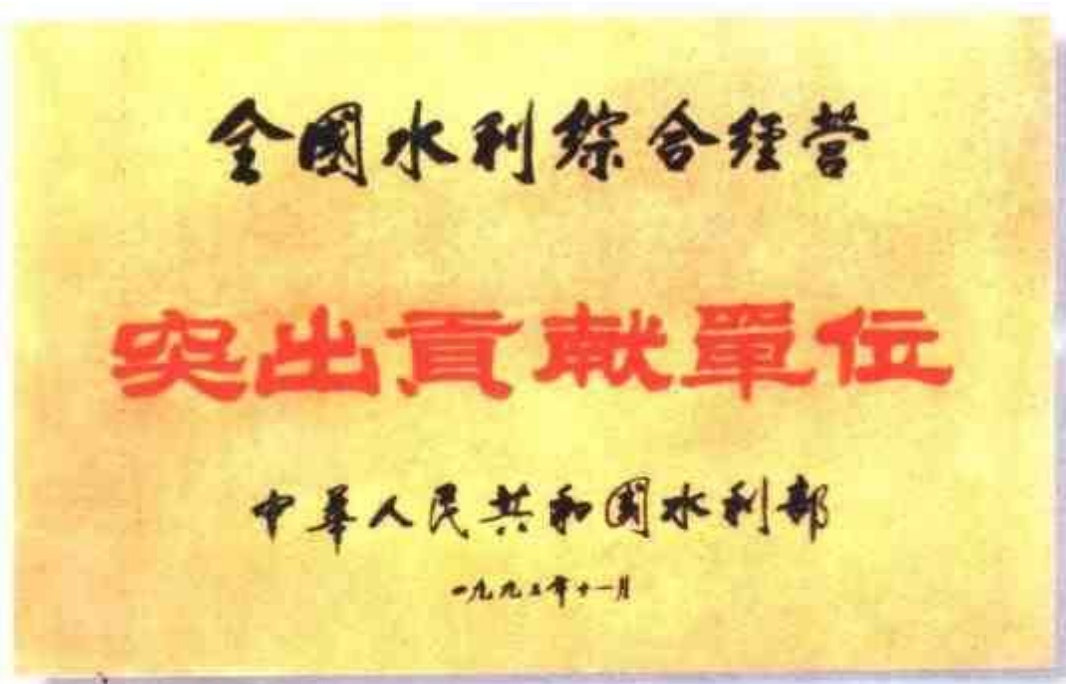 全國水利綜合經营
突出貢献單位
中華人民共和國水利部
一九九五年十一月